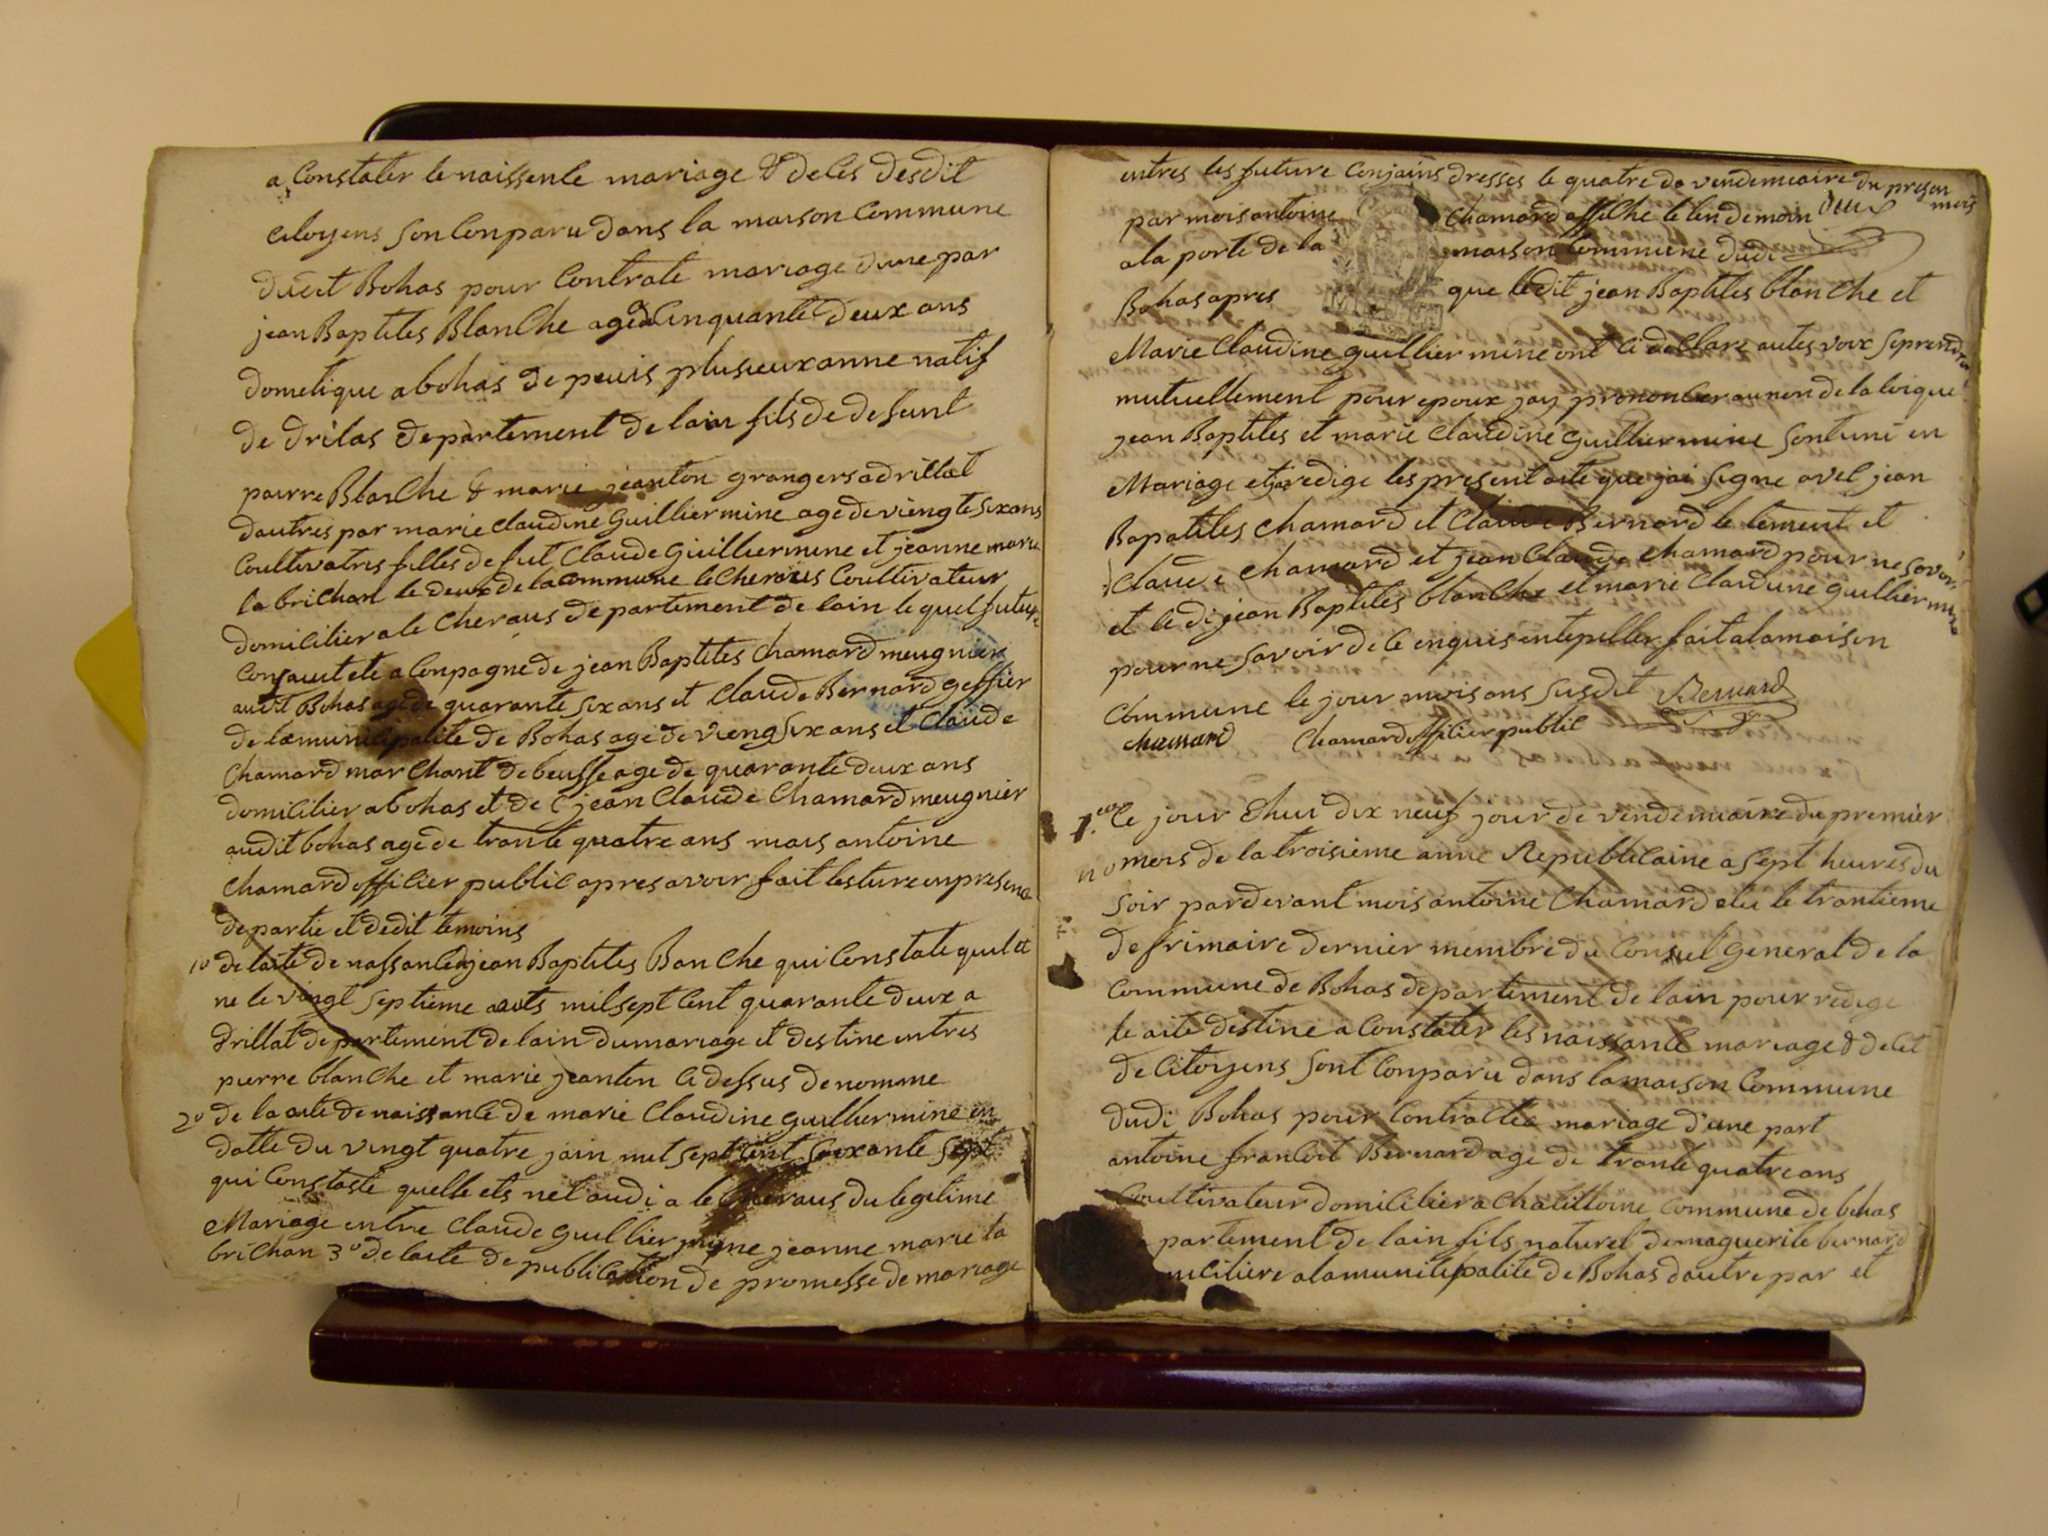 a Constater le naissente mariage & deces desdit
citoyens son Conparu dans la maison Commune
dudit Bohas pour Contrate mariage dune par
jean Baptites Blanche age Cinquante deux ans
dometique a bohas depeuis plusieux anne natif
de drilas departement de lain fils de defunt
pairre Blanche & marie jeanton grangers a drillat
dautres par marie Claudine Guilliermine age de viengte six ans
Coultivatris filles de fut Claude Guilliermine et jeanne marie
la brichan le deux de la Commune le Cheraus Coultivateur
domicilier a le Cheraus departement de lain le quel future
Conjaint ete a Conpagne de jean Baptites Chamard meugnier
audit Bohas age de quarante six ans et Claude Bernard geffier
de la municipalite de Bohas age de vieng six ans et Claude
Chamard marchant debeusse age de quarante deux ans
domicilier a bohas et de jean Claude Chamard meugnier
audit bohas age de trante quatre ans mais antoine
Chamard officier public apres avoir fait lesture en presence
de partie et dedit temoins
1o de laite de nassance jean Baptites Banche qui Constate quil et
ne le vingt septieme aouts mil sept Cent quarante deux a
drillat departement de lain du mariage et destine entres
pierre blanche et marie jeanten Ci dessus denomme
2o de la aite de naissante de marie Claudine guilliermine en
datte du vingt quatre juin mil sept Cent soixante sept
qui Constaste quelle ets net audi a le Cheraus du legitime
Mariage entre Claude guilliermine jeanne marie la
brichan 3o de laite de publication de promesse de mariage
entres les future Conjains dresses le quatre de vendemeaire du presan mois
par mois antoine Chamard affiche le lendemain
a la porte de la maison Commune dudi
Bohas apres que ledit jean Baptites blanche et
Marie Claudine guilliermine ont de Clare autes voix seprendre
mutuellement pour epoux jay prononcer au non de la loi que
jean Baptites et marie Claudine Guilliermine sont uni en
Mariage et redige les present aite que jai signe avec jean
Bapatites Chamard et Claude Bernard le temeent et
Claude Chamard et jean Claude Chamard pour ne savoir
et le di jean Baptites blanche et marie Claudine guilliermine
pour ne savoir de le enquis fait a la maison
Commune le jour mois ans susdit Bernard
chamard Chamard officier public
1.er Ce jour dhui dix neuf jour de vendemeaire du premier
no mois de la troisieme anne Republicaine a sept heures du
soir pardevant mois antoine Chamard elu le trantieme
de frimaire dernier membre du Consiel general de la
Commune de Bohas departement de lain pour redige
le aite destine a Constater les naissance mariage & decet
de Citoyens sont Conparu dans la maison Commune
dudi Bohas pour Contracter mariage d'une part
antoine francoit Bernard age de trante quatre ans
Coultivateur domicilier a Chatilloine Commune de bohas
partement de lain fils naturel de maguerite bernard
miciliere a la municipalite de Bohas dautre par et